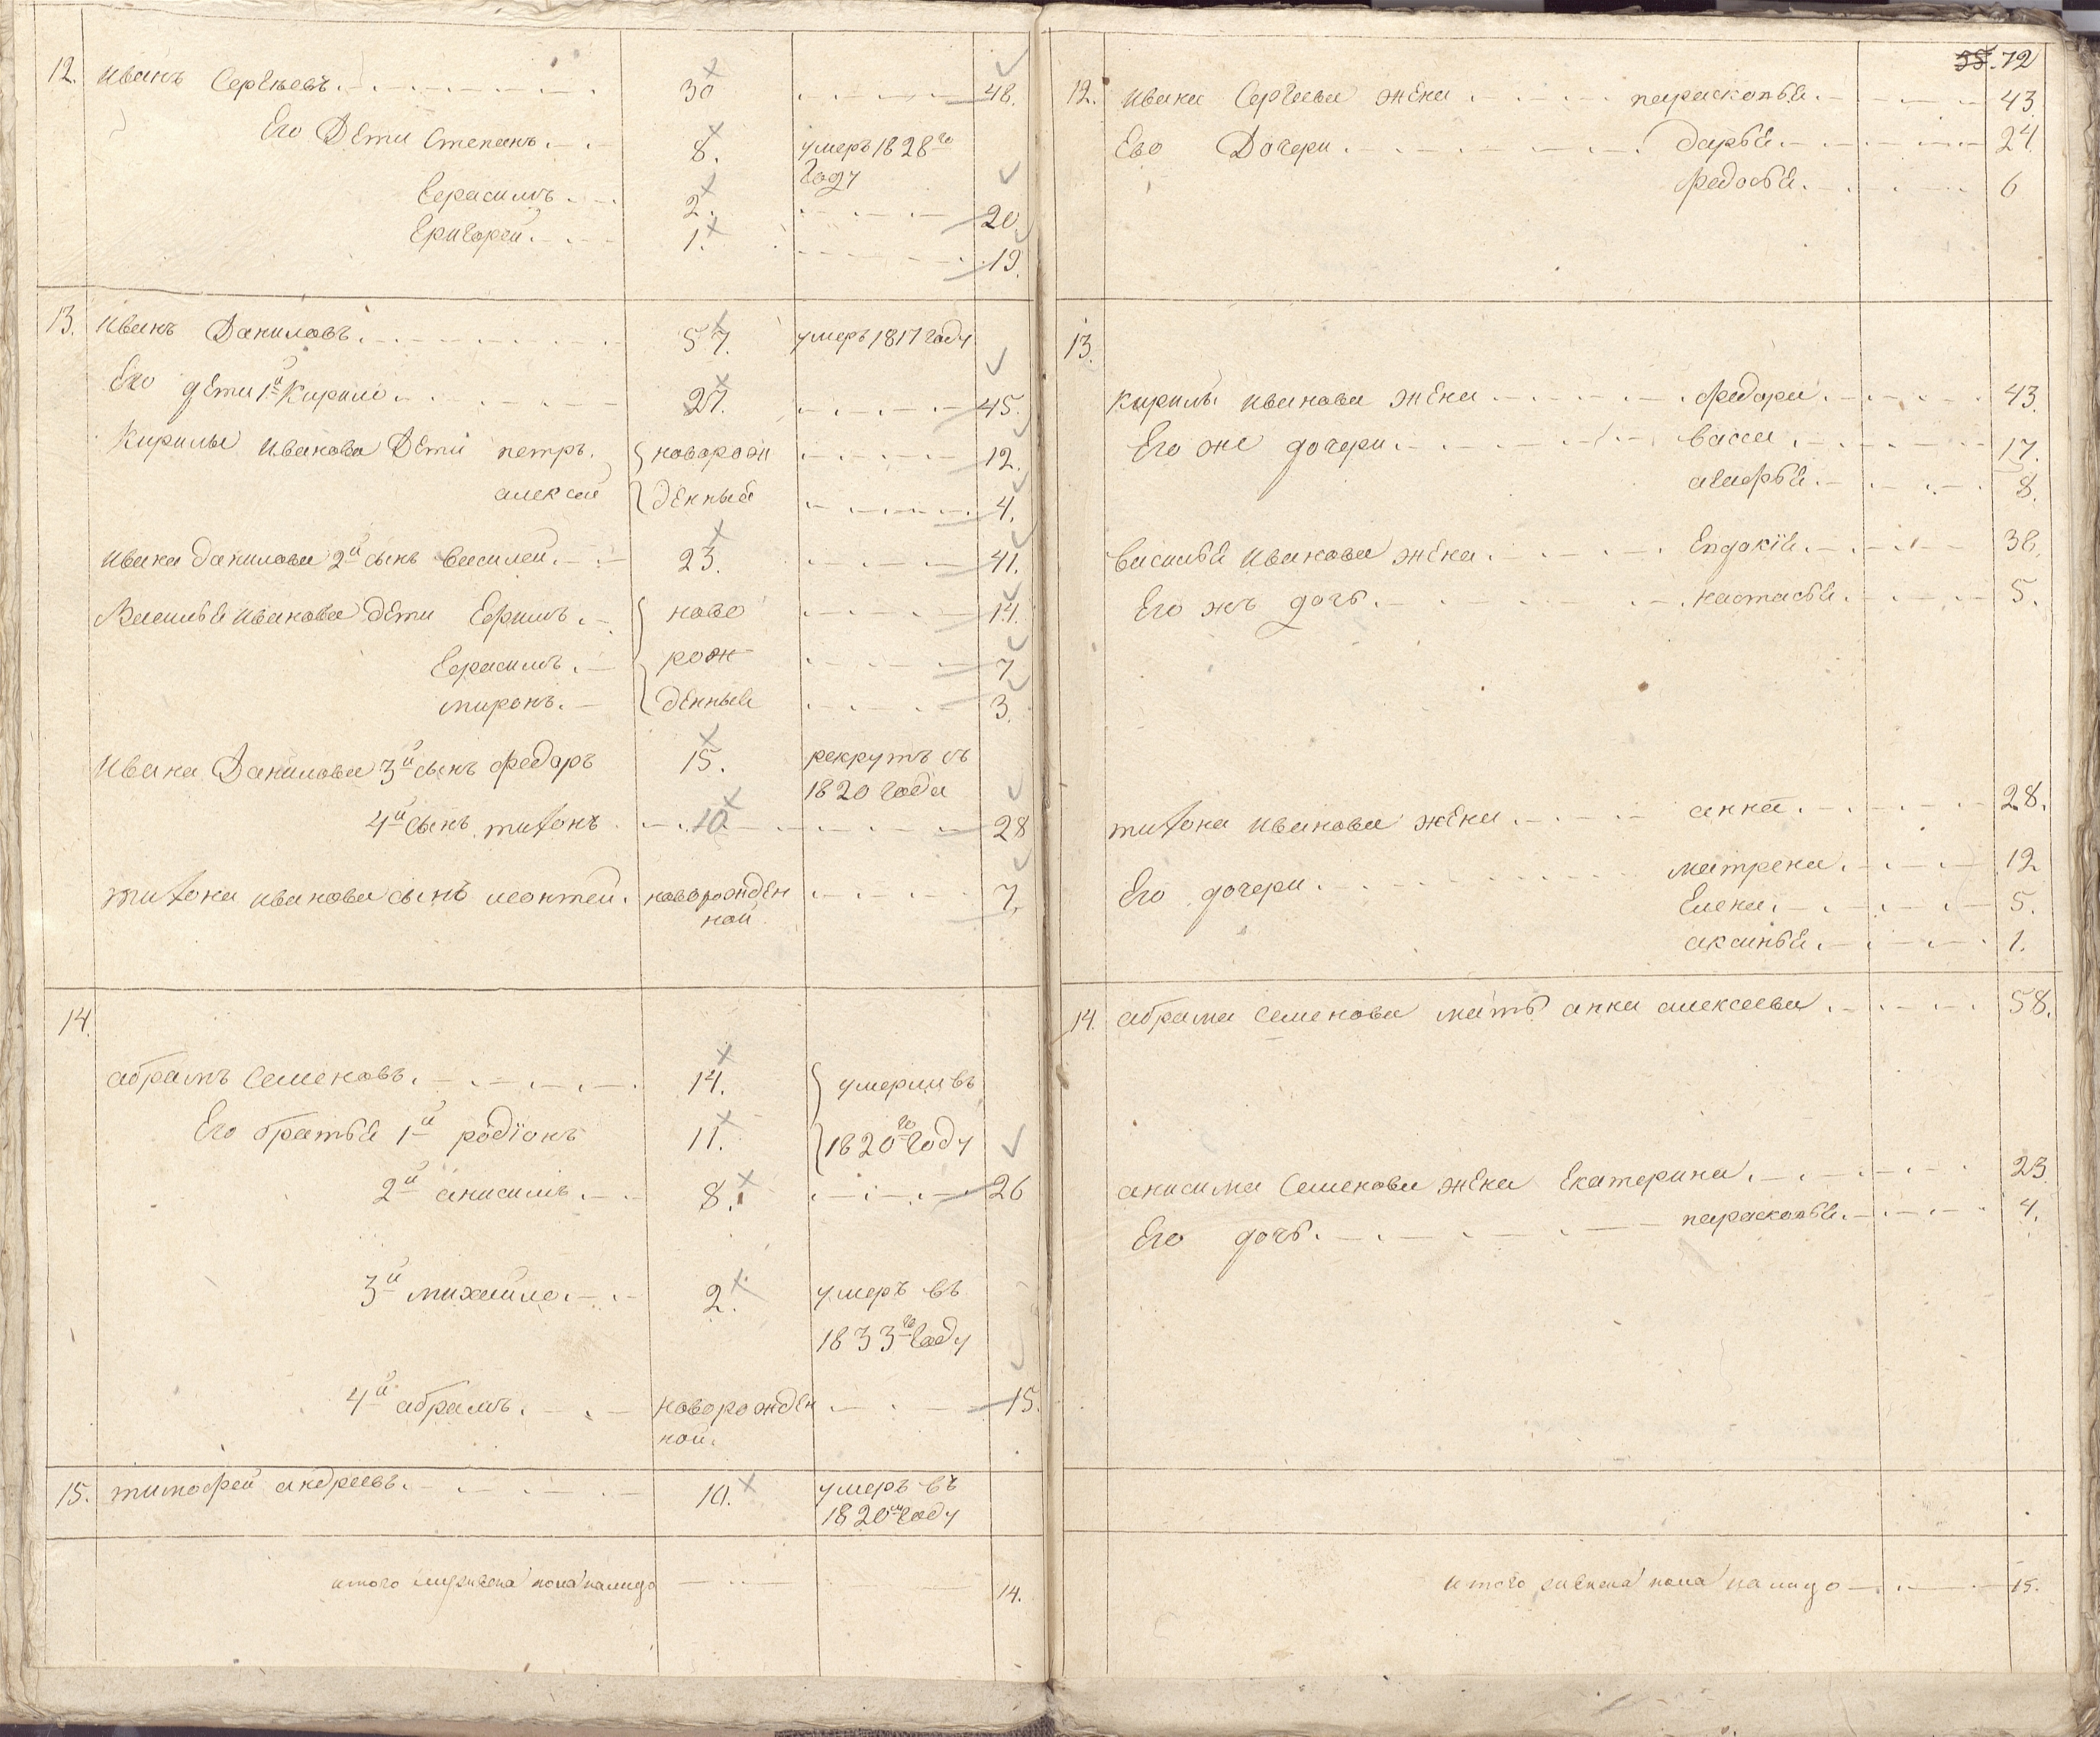 12. Иванъ Сергѣевъ. 30 48.
Его Дети Степанъ. 8. умеръ 1828го
Году
Герасимъ. 2. 20.
Григорей. 1. 19.
13. Иванъ Даниловъ. 57. умеръ 1817 году
Его дети 1й Кирило. 27. 45.
Кирилы Иванова Дети петръ. новорож 12.
алексей денныя 4.
Ивана данилова 2й сынъ василей. 23. 41.
Василья Иванова дети Ефимъ. ново 14.
Герасимъ. рож 7
миронъ. денныя 3.
Ивана Данилова 3й сынъ федоръ 15. рекрутъ съ
1820 года
4й сынъ тихонъ 10 28
тихона иванова сынъ леонтей. новорожден 7.
ной
14.
абрамъ Семеновъ. 14. умерли въ
Его братья 1й родiонъ 11. 1820го Году
2й анисимъ. 8. 26
3й михайло. 2. умеръ въ
1833го Году
4й абрамъ. новорожден 15.
ной.
15. тимофей андреевъ. 10. умеръ въ
1820м году
итого мужеска пола налицо 14.
38. 72
12. Ивана Сергеева жена парасковья. 43
Ево Дочери. дарья. 24.
федосья. 6
13.
кирилы иванова жена федора. 43.
Его же дочери. васса. 17.
агафья. 8.
василья иванова жена. Евдокiя. 38.
Его жъ дочь. настасья. 5.
тихона иванова жена анна. 28.
Его дочери. матрена. 12
Елена. 5.
аксинья. 1.
14. абрама семенова мать анна алексеева. 58.
анисима Семенова жена Екатерина. 23
Его дочь. парасковья. 4.
итого женска пола налицо 15.